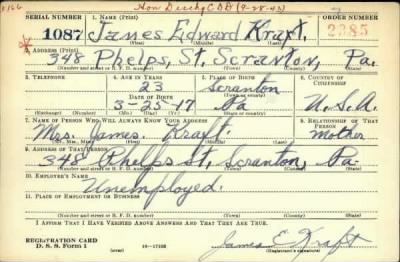 Hon Disch CDD (9-28-45)
SERIAL NUMBER 1. NAME (Print) ORDER NUMBER
1087 James Edward Kraft. 2285
(First) (Middle) (Last)
2. ADDRESS (Print)
348 Phelps, St, Scranton, Pa.
(Number and street or R. F. D. number) (Town) (County) (State)
3. TELEPHONE 4. AGE IN YEARS 5. PLACE OF BIRTH 6. COUNTRY OF CITIZENSHIP
23 Scranton
DATE OF BIRTH (Town or county)
3-25-17 Pa U.S.A.
(Exchange) (No.) (Mo.) (Day) (Yr.) (State or country)
7. NAME OF PERSON WHO WILL ALWAYS KNOW YOUR ADDRESS 8. RELATIONSHIP OF THAT PERSON
Mrs. James. Kraft. Mother
(Mr., Mrs., Miss) (First) (Middle) (Last)
9. ADDRESS OF THAT PERSON
348 Phelps St, Scranton, Pa
(Number and street or R. F. D. number) (Town) (County) (State)
10. EMPLOYER'S NAME
Unemployed.
11. PLACE OF EMPLOYMENT OR BUSINESS
(Number and street or R. F. D. number) (Town) (County) (State)
I AFFIRM THAT I HAVE VERIFIED ABOVE ANSWERS AND THAT THEY ARE TRUE.
REGISTRATION CARD
D. S. S. Form 1 16-17105 James E Kraft
(Registrant's signature)